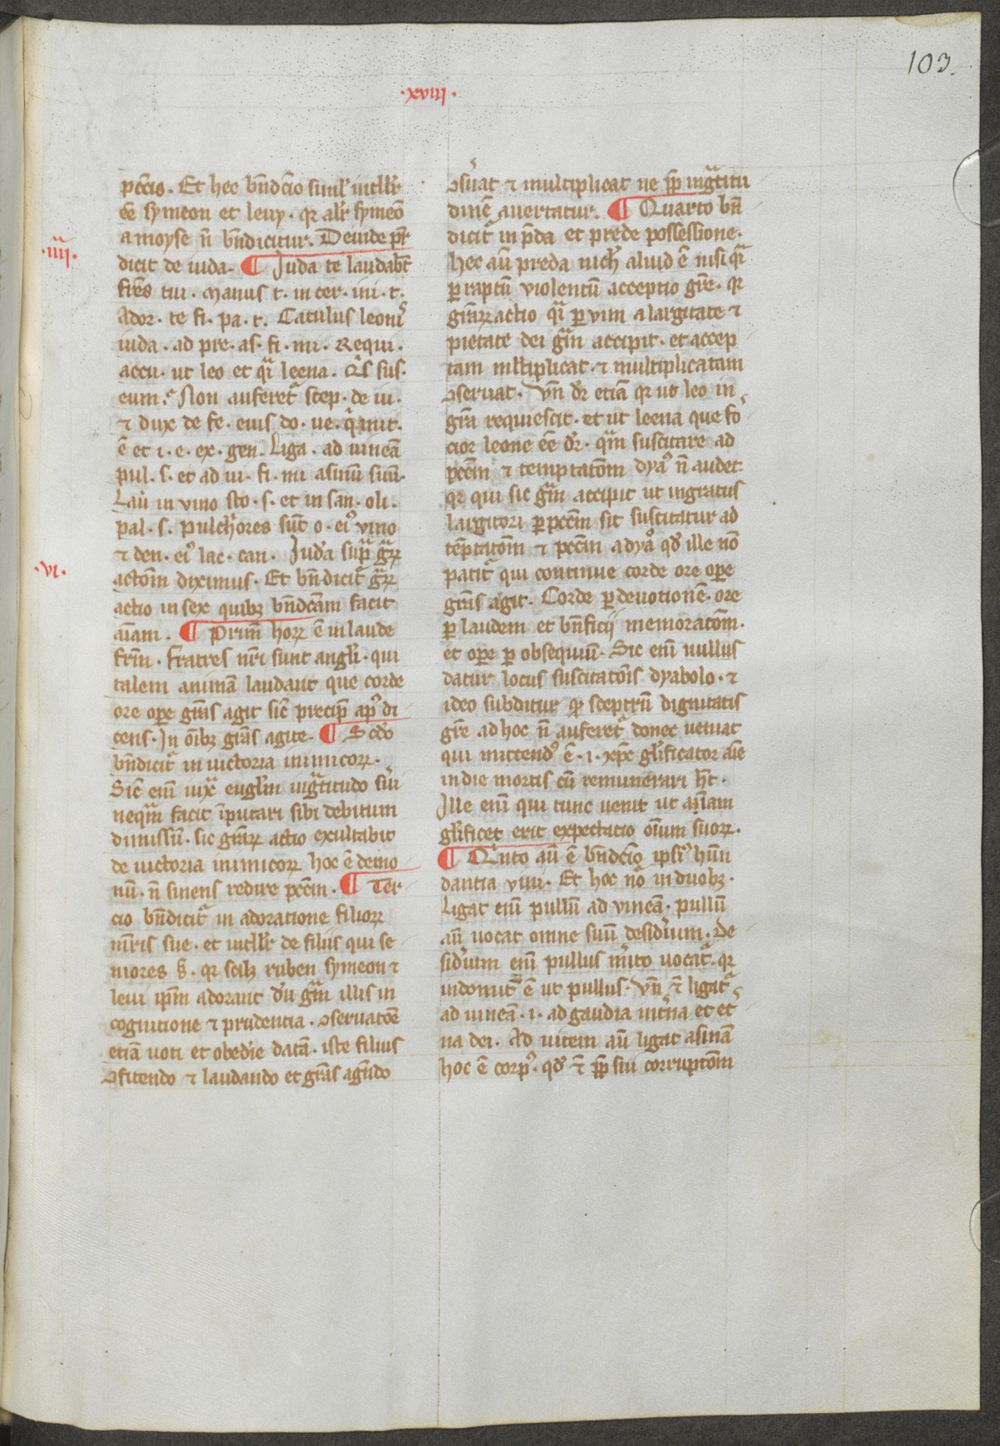 103.
·xviiij·
pctis. Et hec bñdictio simil' intellr̄
eē symeon et leuy. qr alr̄ symeō
a moyse ñ bñdicitur. Deinde pr̄
·iiij·
dicit de iuda. ¶ Iuda te laudabt̄
fres tui. manus t. in cer. ini. t.
Ador. te fi. pa. t. Catulus leonis
iuda. ad pre. as. fi. mi. Requi.
accu. ut leo et q̄i leena. Q's sus.
eum. Non auferet' scep. de iu.
⁊ dux de fe. eius do. ue. q' mit.
ē et i. e. ex. gen. Liga. ad uineā
pul. s. et ad ui. fi. mi asinā suā.
Lau in vino sto. s. et in san. oli.
pal. s. pulchriores sūt o. ei' vino
⁊ den. ei' lac. can. Iuda supra gr̄aꝝ
·vi·
actōm diximus. Et bñdicit' gr̄aꝝ
actio in sex quibꝫ bñdcām facit
aiam. ¶ Primū hoꝝ ē in laude
frm̄. Fratres nr̄i sunt angl'i. qui
talem animā laudant que corde
ore ope gr̄as agit sic precip' ap's di
cens. In oībꝫ gr̄as agite. ¶ Scdo
bñdicit' in uictoria inimicoꝝ.
Sic enī iuxª euglm̄ ingª̄titudo sui
nequā facit iputari sibi debitum
dimissū. sic gr̄aꝝ actio exultabit
de uictoria inimicoꝝ hoc ē demo
nū. ñ sinens redire pctm̄. ¶ Ter
cio bñdicit' in adoratione filioꝝ
mr̄is sue. et intellr̄ de filiis qui se
niores s̄. qr scilꝫ ruben symeon ⁊
leui ipm̄ adorant dū gr̄am illis in
cognitione ⁊ prudentia. ꝯseruatōe
etiā uoti et obedie datā. iste filius
ꝯfitendo ⁊ laudando et gr̄as agendo
ꝯseruat ⁊ multiplicat ne ꝓpt' ingª̄titu
dinē auertatur. ¶ Quarto bñ
dicit' in p̄da et prede possessione.
hec aū preda nich' aliud ē nisi q̄i
ꝑ raptum violentū acceptio gr̄e. qr
gr̄aꝝ actio q̄i ꝑ vim a largitate ⁊
pietate dei gr̄am accipit. et accep
tam multiplicat ⁊ multiplicatam
ꝯseruat. Vñ dr̄ etiā qr ut leo in
gr̄a requiescit. et ut leena que fo
cior leone eē dr̄. q̄m suscitare ad
pctm̄ ⁊ temptatōm dya' ñ audet
qr qui sic gr̄am accipit ut ingratus
largitori ꝑ pctm̄ sit suscitatur ad
teptatōm ⁊ pctm̄ a dya' qd ille nō
patit' qui continue corde ore ope
gr̄as agit. Corde ꝑ deuotionē. ore
ꝑ laudem et bñficij memoratōm.
et ope ꝑ obsequiū. Sic enī nullus
datur locus suscitatōis dyabolo. ⁊
ideo subditur qr sceptrū dignitatis
gr̄e. ad hoc ñ auferet' donec ueniat
qui mittend' ē .i. xpc gl'ificator aīe
in die mortis cū remunerari ht̄.
Ille enī qui tunc uenit ut aīam
gl'ificet erit expectatio oīum suoꝝ.
¶ Quīto aū ē bñdictio ipsi' habun
dantia vini. Et hoc nō in duobꝫ.
Ligat enī pullū ad vineā. pullū
aū uocat omne suū desid'ium. De
sid'ium enī pullus m'ito uocat'. qr
indomit' ē ut pullus. Vñ ⁊ ligat'
ad uineā .i. ad gaudia interna et et'
na dei. Ad uitem aū ligat asinā
hoc ē corp'. qd ⁊ ꝓpt' sui corruptōm